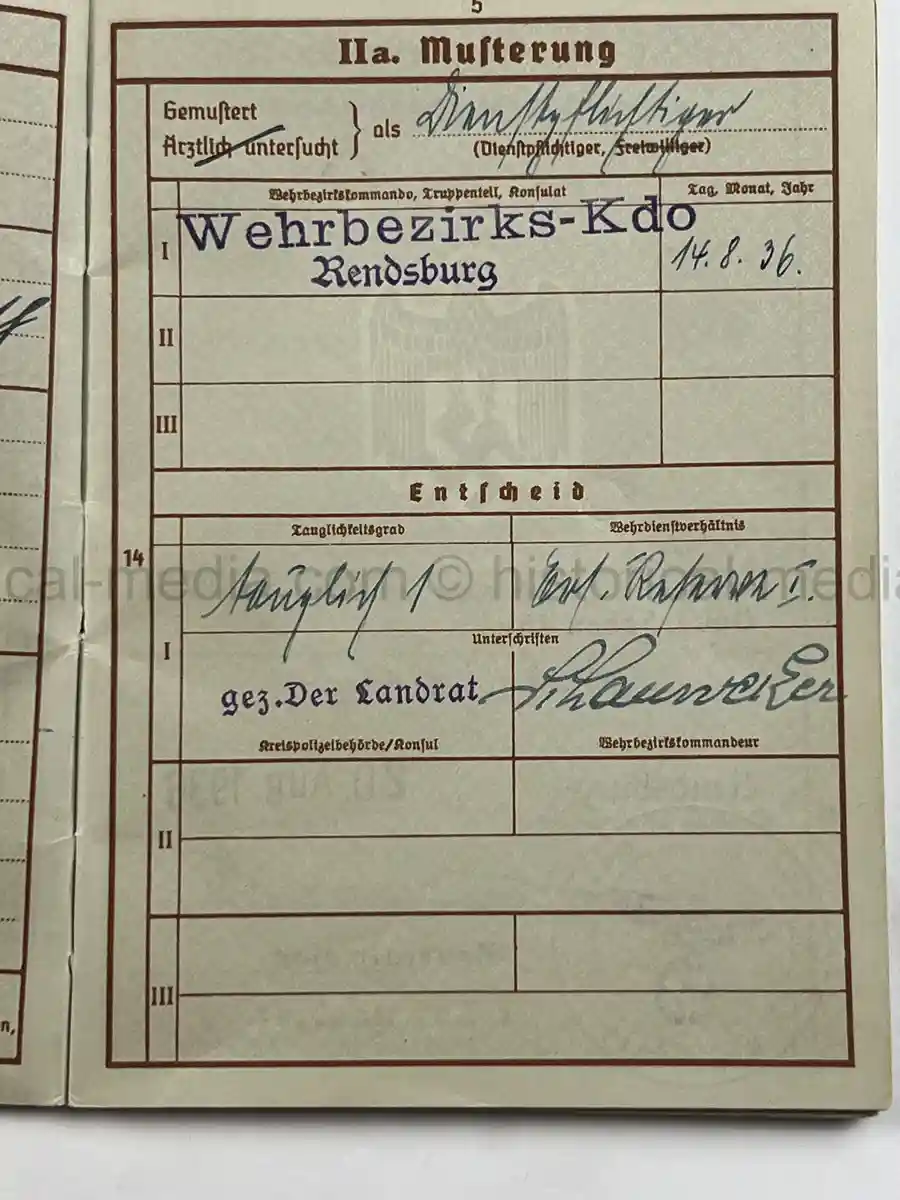 5
IIa. Musterung
Gemustert
Ärztlich untersucht } als Dienstpflichtiger
(Dienstpflichtiger, Freiwilliger)
Wehrbezirkskommando, Truppenteil, Konsulat
Tag, Monat, Jahr
I
Wehrbezirks-Kdo
Rendsburg
14. 8. 36.
II
III
Entscheid
14
Tauglichkeitsgrad
Wehrdienstverhältnis
cal-media.com © historical-media
I
tauglich 1
Ers. Reserve I.
Unterschriften
gez. Der Landrat
Kreispolizeibehörde/Konsul
Wehrbezirkskommandeur
II
III
n,